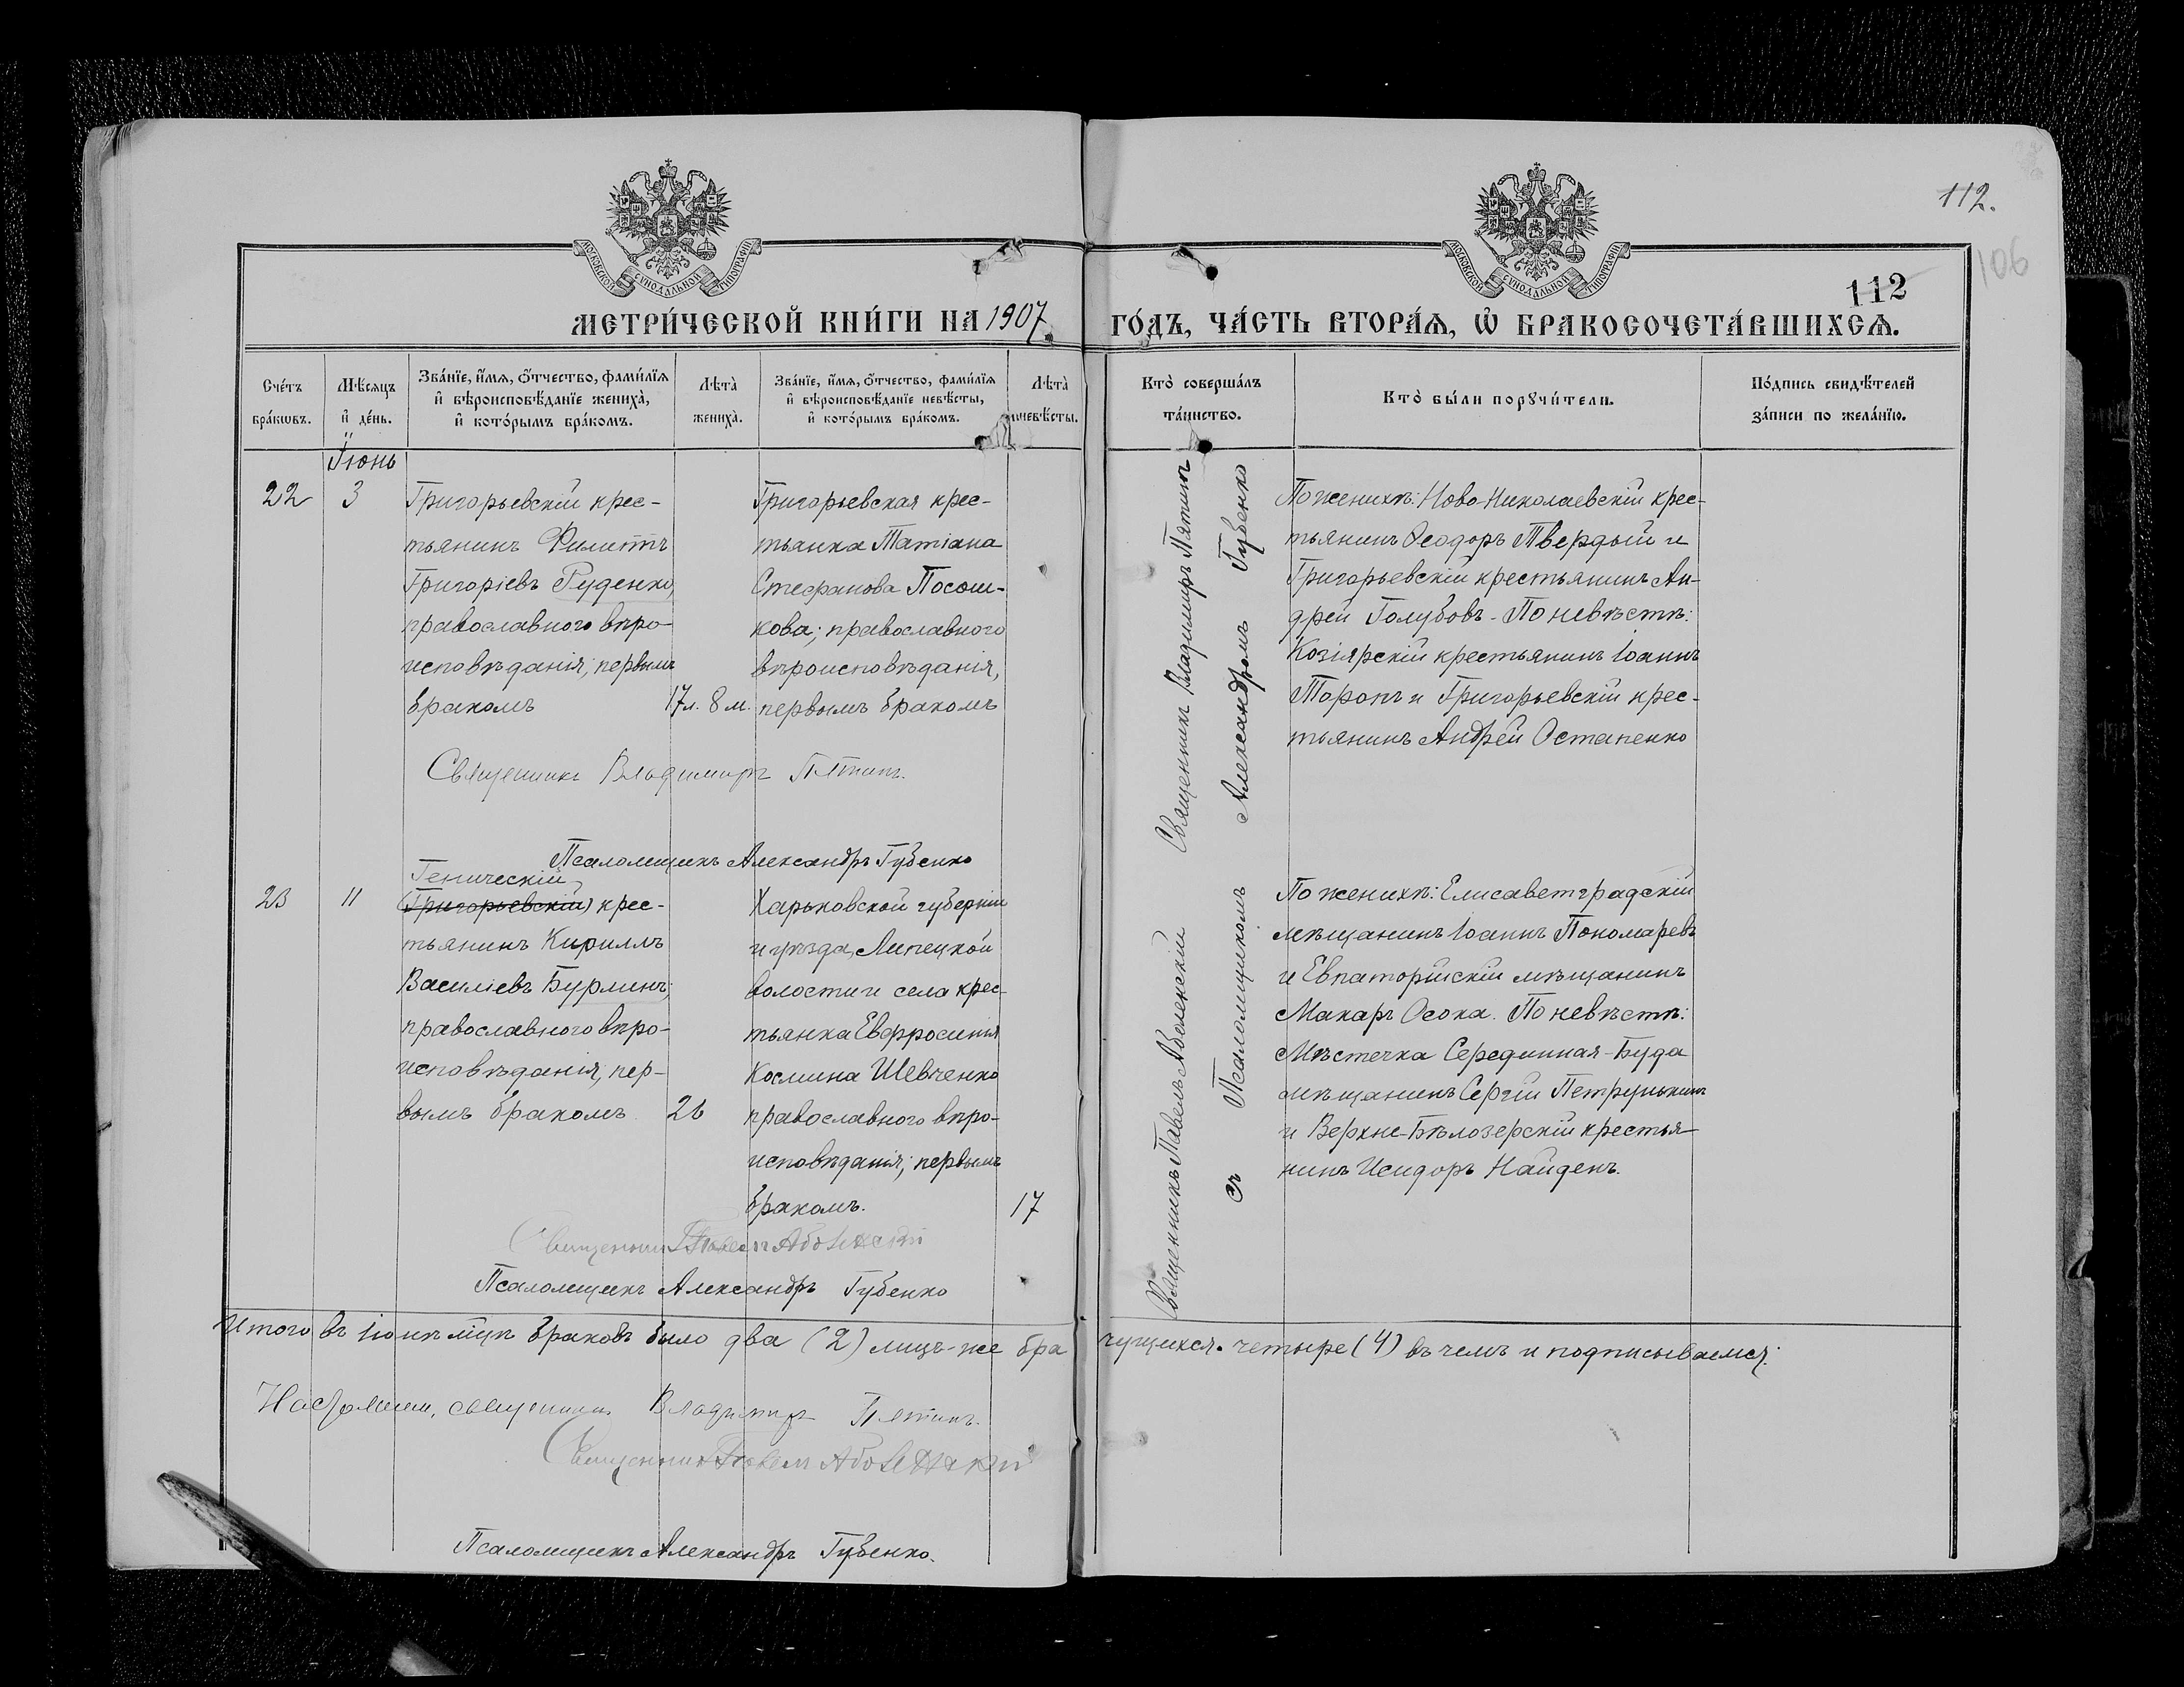 112.
106
112
МОСКОВСКОЙ СѴНОДАЛЬНОЙ ТИПОГРАФІИ
МОСКОВСКОЙ СѴНОДАЛЬНОЙ ТИПОГРАФІИ
МЕТРИ́ЧЕСКОЙ КНИ́ГИ НА 1907 ГО́ДЪ, ЧА́СТЬ ВТОРА́Ѧ, Ѽ БРАКОСОЧЕТА́ВШИХСѦ.
Сче́тъ
бра́кѡвъ.
Мѣ́сяцъ
и҆ де́нь.
Зва́нїе, и҆́мѧ, ѻ҆́тчество, фами́лїѧ
и҆ вѣроисповѣ́данїе жениха̀,
и҆ кото́рымъ бра́комъ.
Лѣта̀
жениха̀.
Зва́нїе, и҆́мѧ, ѻ҆́тчество, фами́лїѧ
и҆ вѣроисповѣ́данїе невѣ́сты,
и҆ кото́рымъ бра́комъ.
Лѣта̀
невѣ́сты.
Кто̀ соверша́лъ
та́инство.
Кто̀ бы́ли порꙋчи́тели.
По́дпись свидѣ́телей
за́писи по жела́нїю.
Іюнь
22
3
Григорьевскій крес-
тьянинъ Филиппъ
Григоріевъ Руденко,
православного вѣро-
исповѣданія; первымъ
бракомъ
17 л. 8 м.
Григорьевская крес-
тьянка Татіана
Стефанова Посош-
кова; православного
вѣроисповѣданія,
первымъ бракомъ
Священникъ Владимиръ Пятинъ
Александромъ Губенко
По женихѣ: Ново-Николаевскій крес-
тьянинъ Ѳеодоръ Твердый и
Григорьевскій крестьянинъ Ан-
дрей Голубовъ - По невѣстѣ:
Козіярскій крестьянинъ Іоаннъ
Торопъ и Григорьевскій крес-
тьянинъ Андрей Остапенко
Священникъ Владимиръ Пятинъ.
Псаломщикъ Александръ Губенко
23
11
Геническій
(Григорьевскій) крес-
тьянинъ Кириллъ
Василіевъ Бурлинъ;
православного вѣро-
исповѣданія, пер-
вымъ бракомъ
26
Харьковской губерніи
и уѣзда, Липецкой
волости и села крес-
тьянка Евфросинія
Космина Шевченко
православного вѣро-
исповѣданія; первымъ
бракомъ.
17
Священникъ Павелъ Або́ленскій
съ Псаломщикомъ
По женихѣ: Елисаветградскій
мѣщанинъ Іоаннъ Пономаревъ
и Евпаторійскій мѣщанинъ
Макаръ Осока. По невѣстѣ:
Мѣстечка Серединная-Буда
мѣщанинъ Сергій Петрунькинъ
и Верхне-Бѣлозерскій крестья-
нинъ Исидоръ Найденъ.
Священникъ Павелъ
Псаломщикъ Александръ Губенко
Итого въ Іюнѣ мцѣ браковъ было два (2) лицъ-же бра чущихся. четыре (4) въ чемъ и подписываемся:
священникъ Владимиръ Пятинъ.
Священникъ Павелъ
Псаломщикъ Александръ Губенко.